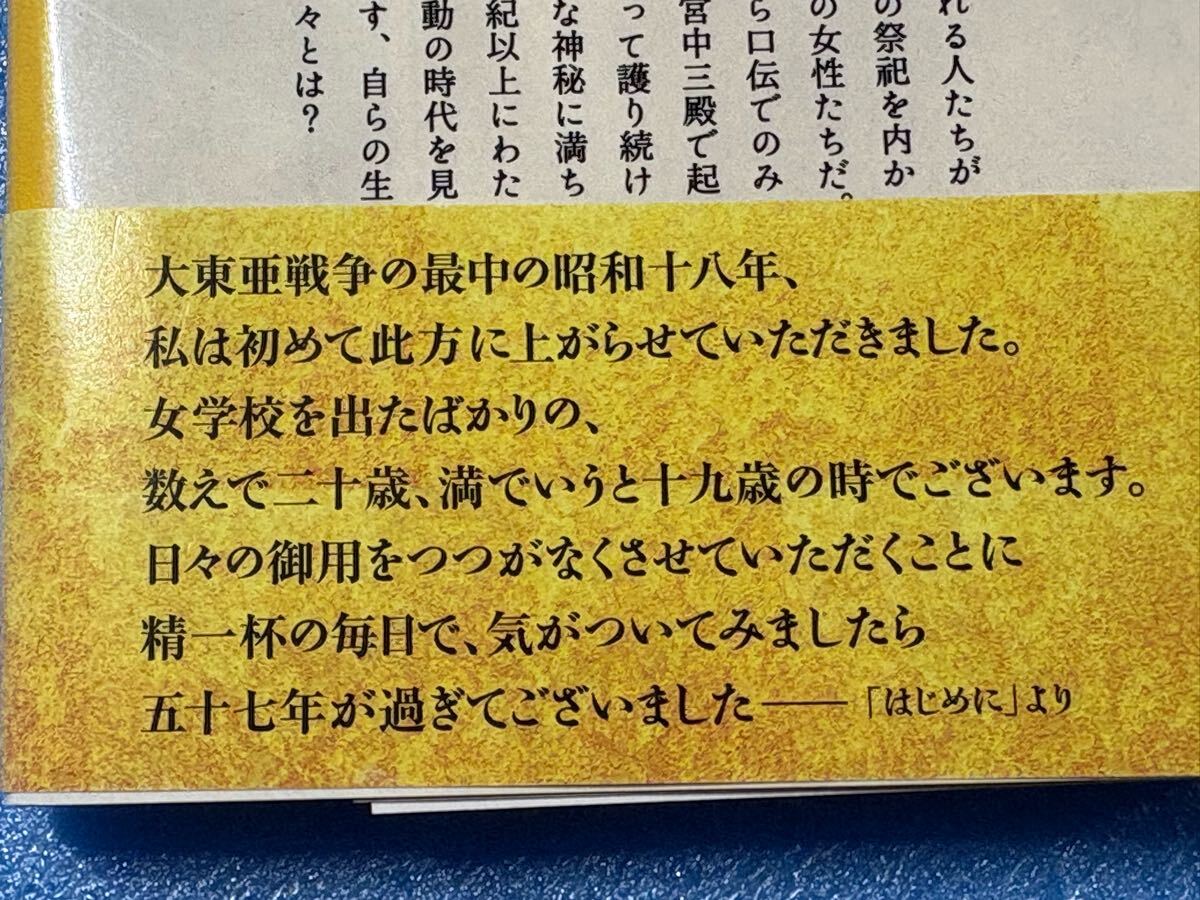 れる人たちが
の祭祀を内か
の女性たちだ。
ら口伝でのみ
宮中三殿で起
って護り続け
な神秘に満ち
紀以上にわた
動の時代を見
す、自らの生
々とは?
大東亜戦争の最中の昭和十八年、
私は初めて此方に上がらせていただきました。
女学校を出たばかりの、
数えで二十歳、満でいうと十九歳の時でございます。
日々の御用をつつがなくさせていただくことに
精一杯の毎日で、気がついてみましたら
五十七年が過ぎてございました――「はじめに」より